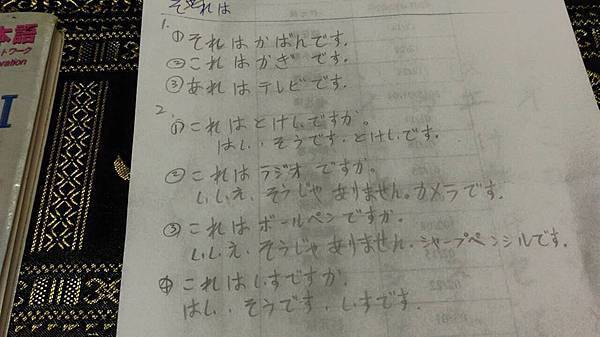 それは
1.
①それはかばんです.
②これはかぎです.
③あれはテレビです.
2.
①これはとけいですか。
はい.そうです.とけいです.
②これはラジオですか。
いいえ.そうじゃありません。カメラです.
③これはボールペンですか.
いいえ.そうじゃありません.シャープペンシルです.
④これはいすですか.
はい.そうです.いすです.
本語
ットワーク
I